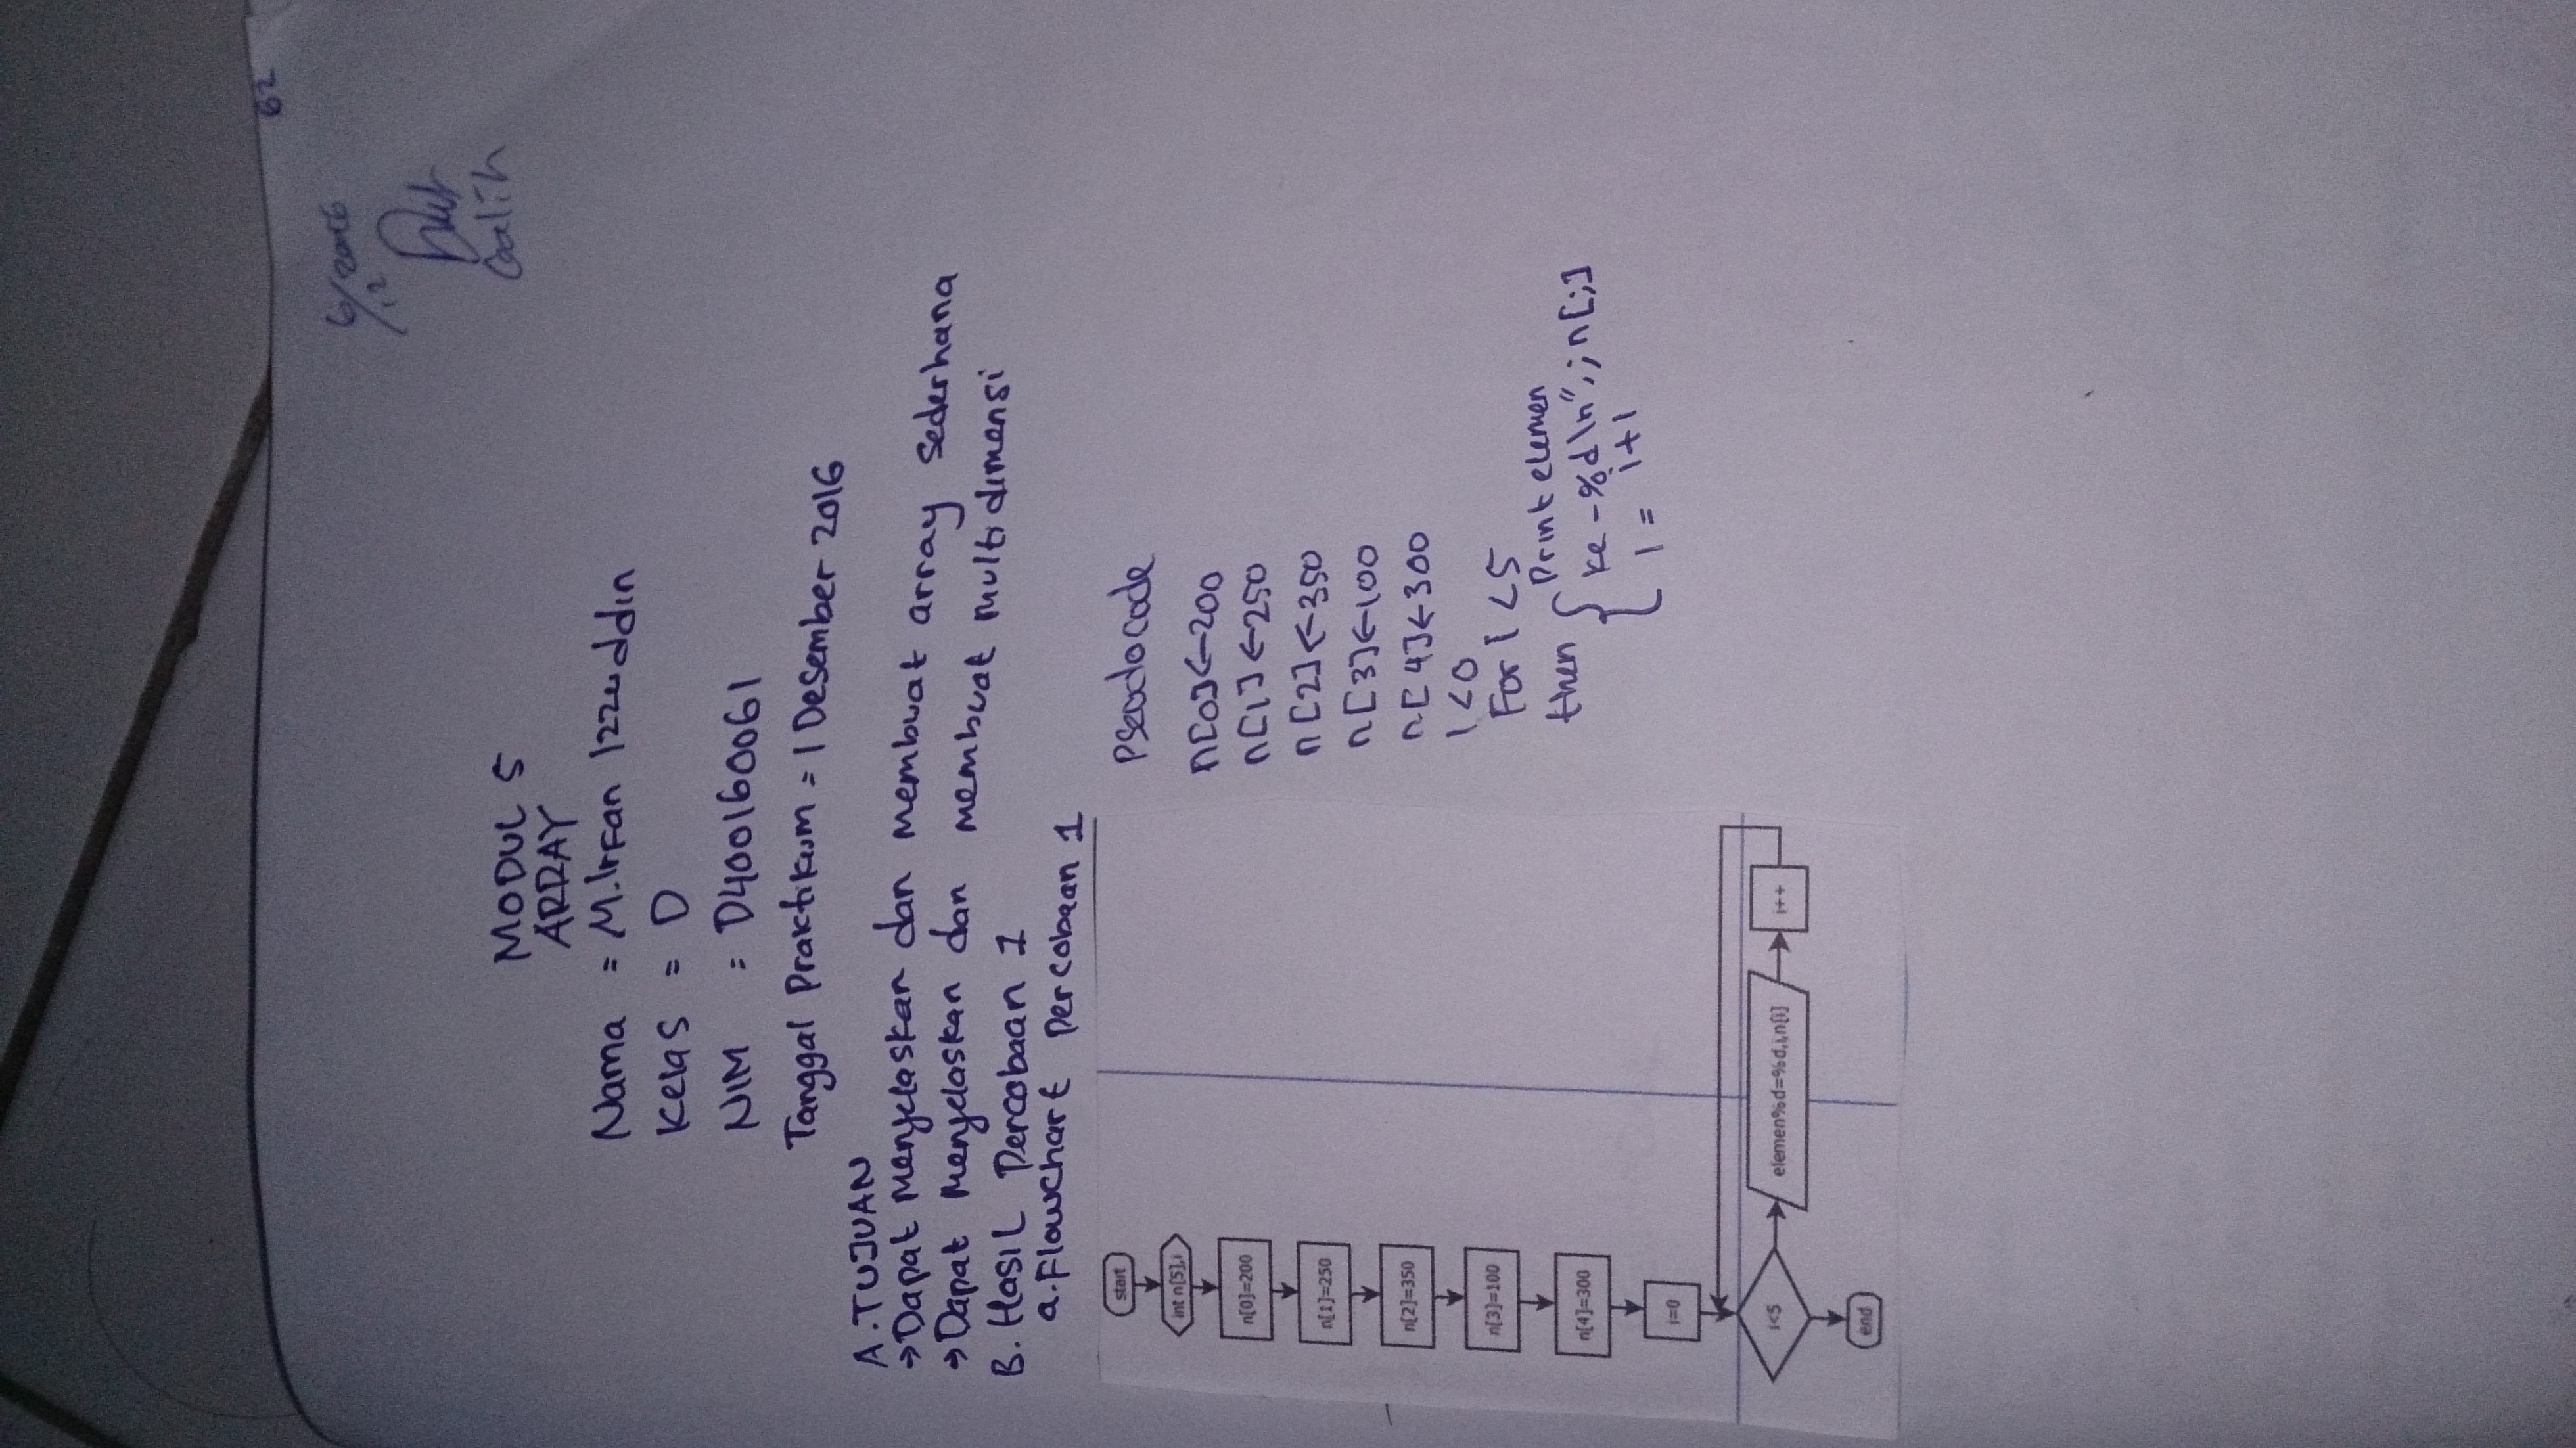 62
6/12/2016
Galih
MODUL 5
ARRAY
Nama = M.Irfan Izzuddin
Kelas = D
NIM = D400160061
Tanggal Praktikum = 1 Desember 2016
A. TUJUAN
→Dapat menjelaskan dan membuat array sederhana
→Dapat menjelaskan dan membuat multi dimensi
B. Hasil Percobaan 1
a. Flowchart Percobaan 1
start
int n[5],i
n[0]=200
n[1]=250
n[2]=350
n[3]=100
n[4]=300
i=0
i<5
elemen%d=%d,i,n[i]
i++
end
Pseodocode
n[0]<-200
n[1]<-250
n[2]<-350
n[3]<-100
n[4]<-300
i<0
For i<5
then { Print elemen
ke -%d\n",; n[i]
i = i+1